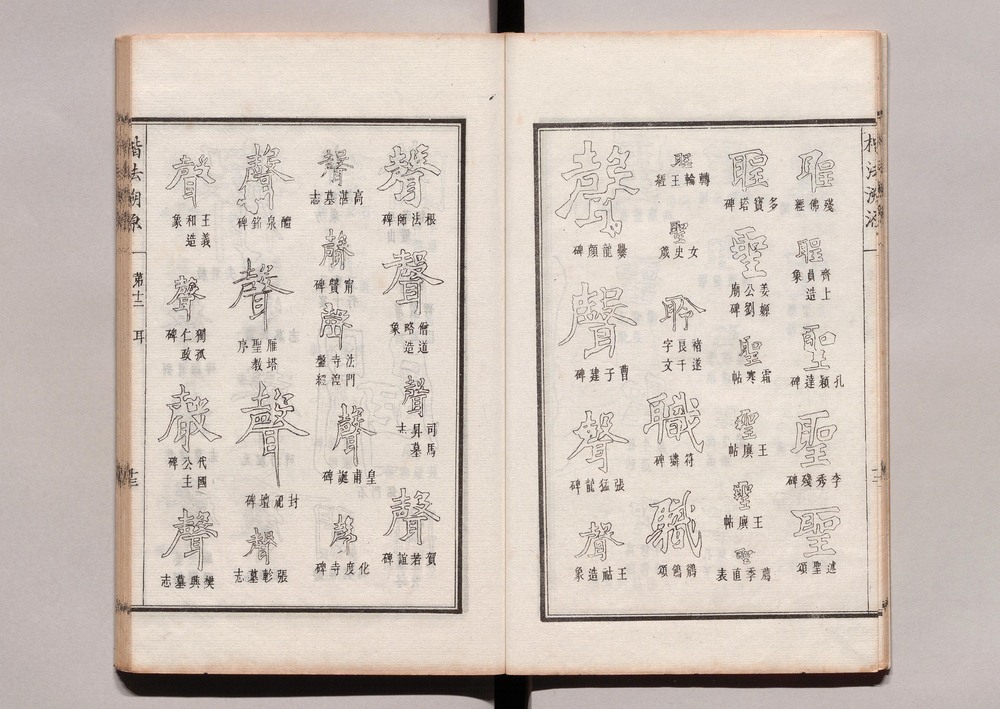 楷法溯源
聖 殘佛經
聖 齊上員造象
聖 孔穎達碑
聖 李秀殘碑
聖 述聖頌
聖 多寶塔碑
聖 姜嫄公劉廟碑
聖 霜寒帖
聖 王廙帖
聖 王廙帖
聖 薦季直表
聖 轉輪王經
聖 女史箴
聆 褚遂良千字文
職 符璘碑
職 鶺鴒頌
聲 爨龍顏碑
聲 曹子建碑
聲 張猛龍碑
聲 王祜造象
聲 根法師碑
聲 僧道略造象
聲 司馬昇墓志
聲 賀若誼碑
聲 高湛墓志
聲 甯贊碑
聲 法門寺 經
聲 皇甫誕碑
聲 化度寺碑
聲 醴泉銘碑
聲 雁塔聖教序
聲 封祀壇碑
聲 張軫墓志
聲 王義和造象
聲 獨孤仁政碑
聲 代國公主碑
聲 樊興墓志
楷法溯源 第十二 耳